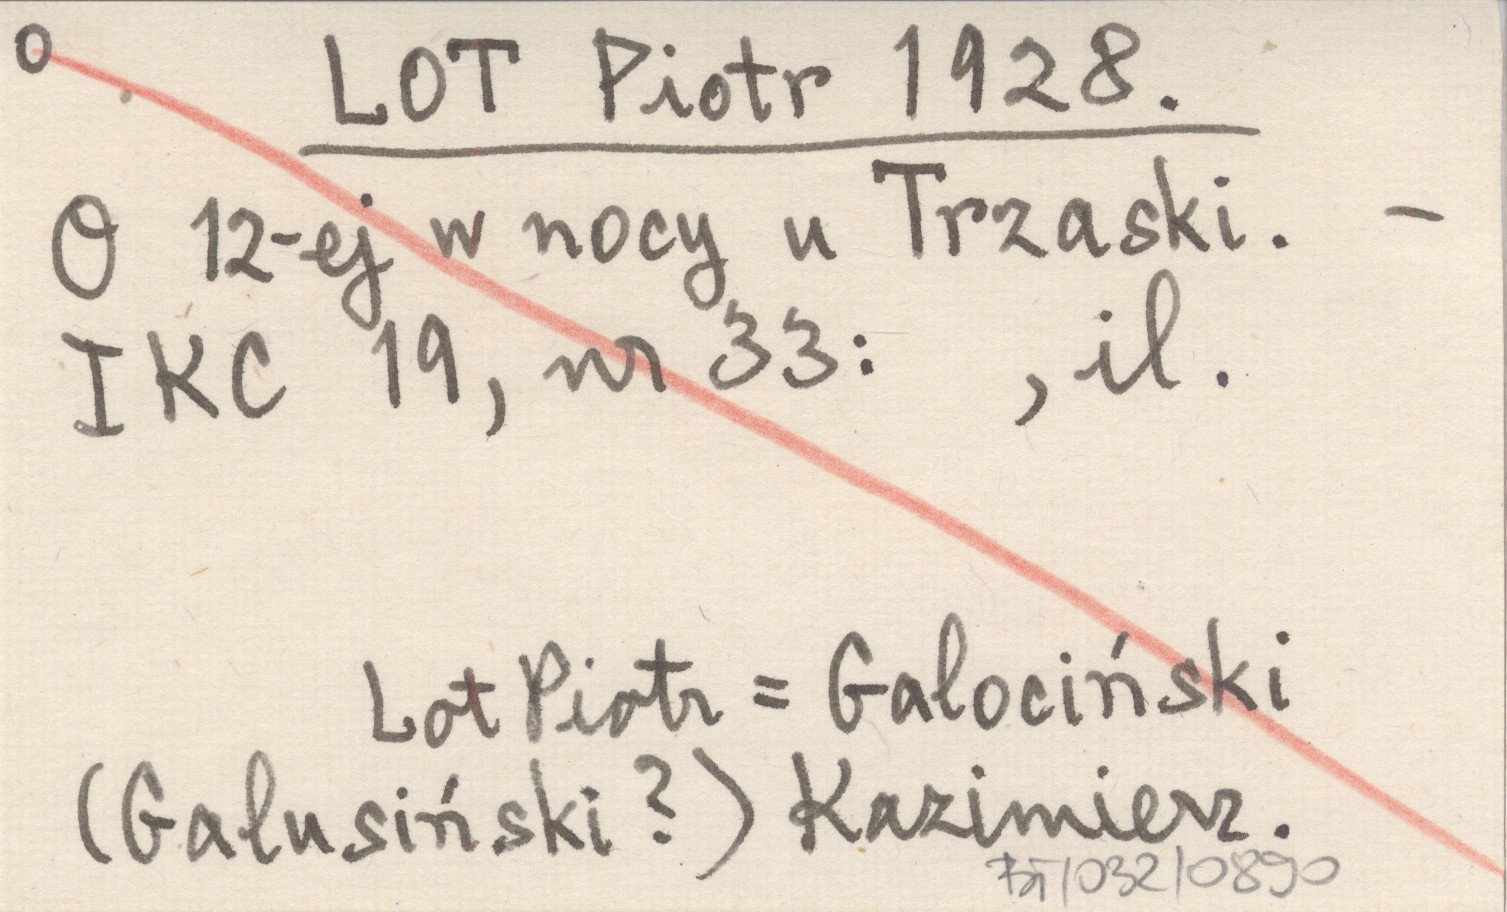 O LOT Piotr 1928.
O 12-ej w nocy u Trzaski. -
IKC 19, nr 33: , il.
Lot Piotr = Galociński
(Galusiński?) Kazimierz.
/032/0890